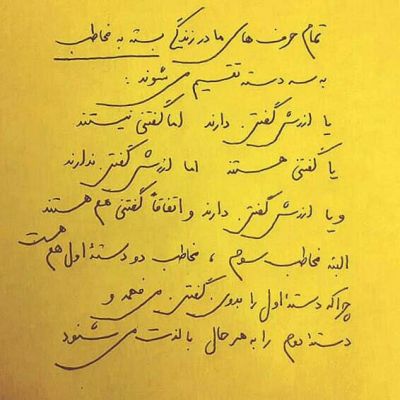 تمام حرف های ما در زندگی بسته به مخاطب
به سه دسته تقسیم می شوند :
یا ارزش گفتن دارند اما گفتنی نیستند
یا گفتنی هستند اما ارزش گفتن ندارند
و یا ارزش گفتن دارند و اتفاقاً گفتنی هم هستند
البته مخاطب سوم ، مخاطب دو دستهٔ اول هم هست
چرا که دستهٔ اول را بدون گفتن می فهمد و
دستهٔ دوم را به هر حال با لذت می شنود